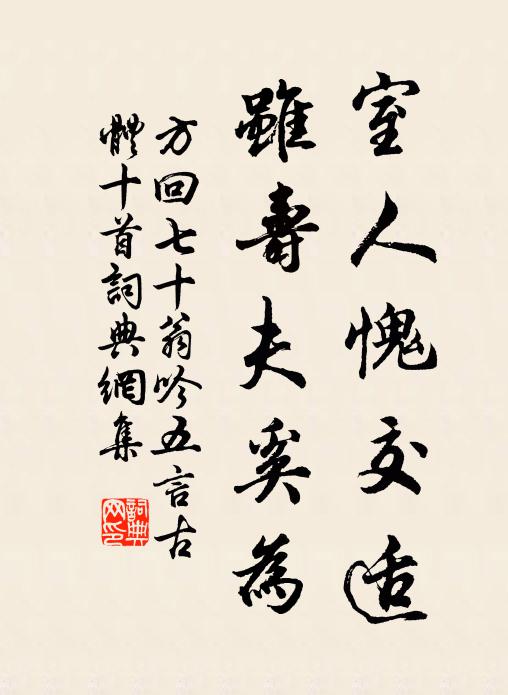 室人愧交适
雖壽夫奚為
方回七十翁吟五言古
體十首詞典網集
詞典
网印